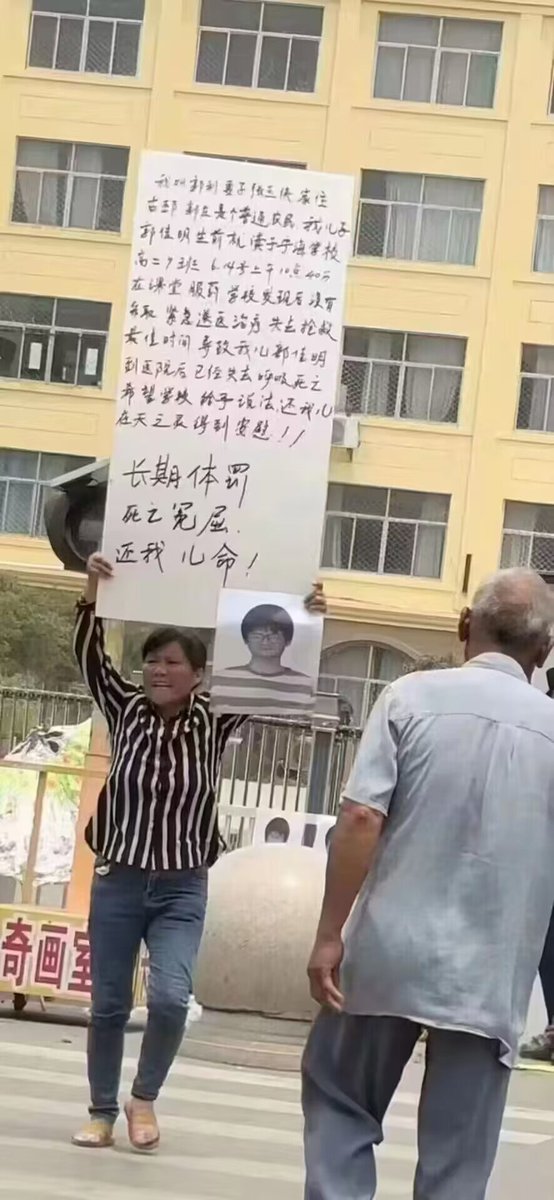 我叫郭利 妻子张三侠 家住
古邳 新庄是个普通农民 我儿子
郭佳明生前就读于宁海学校
高二7班 6.14号上午10点40分
在课堂服药 学校发现后没有
采取 紧急送医治疗 失去抢救
最佳时间 导致我儿郭佳明
到医院后已经失去呼吸死亡
希望学校 给予说法.还我儿
在天之灵得到安慰.！！
长期体罚
死之冤屈.
还我儿命！
奇画室